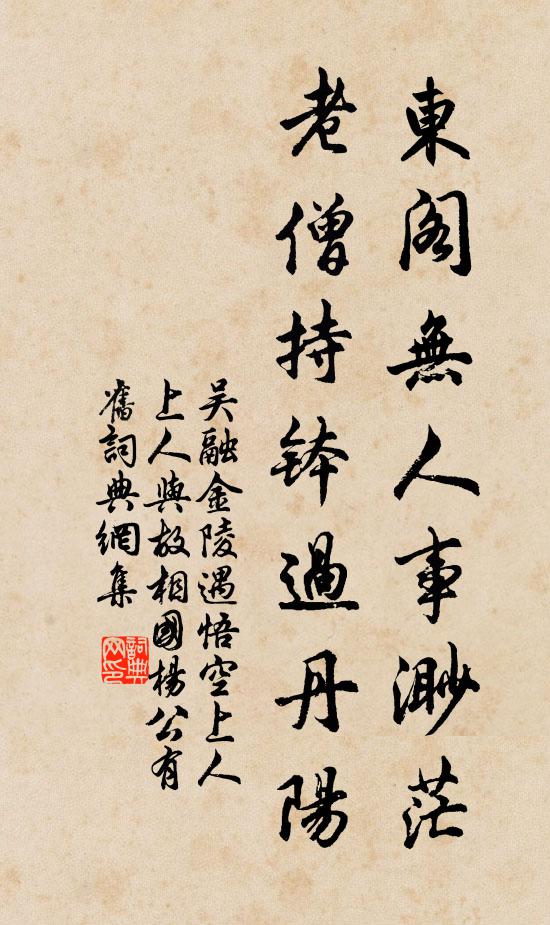 東閣無人事渺茫
老僧持鉢過丹陽
吴融金陵遇悟空上人
上人與故相國楊公有
舊詞典網集
詞典网印